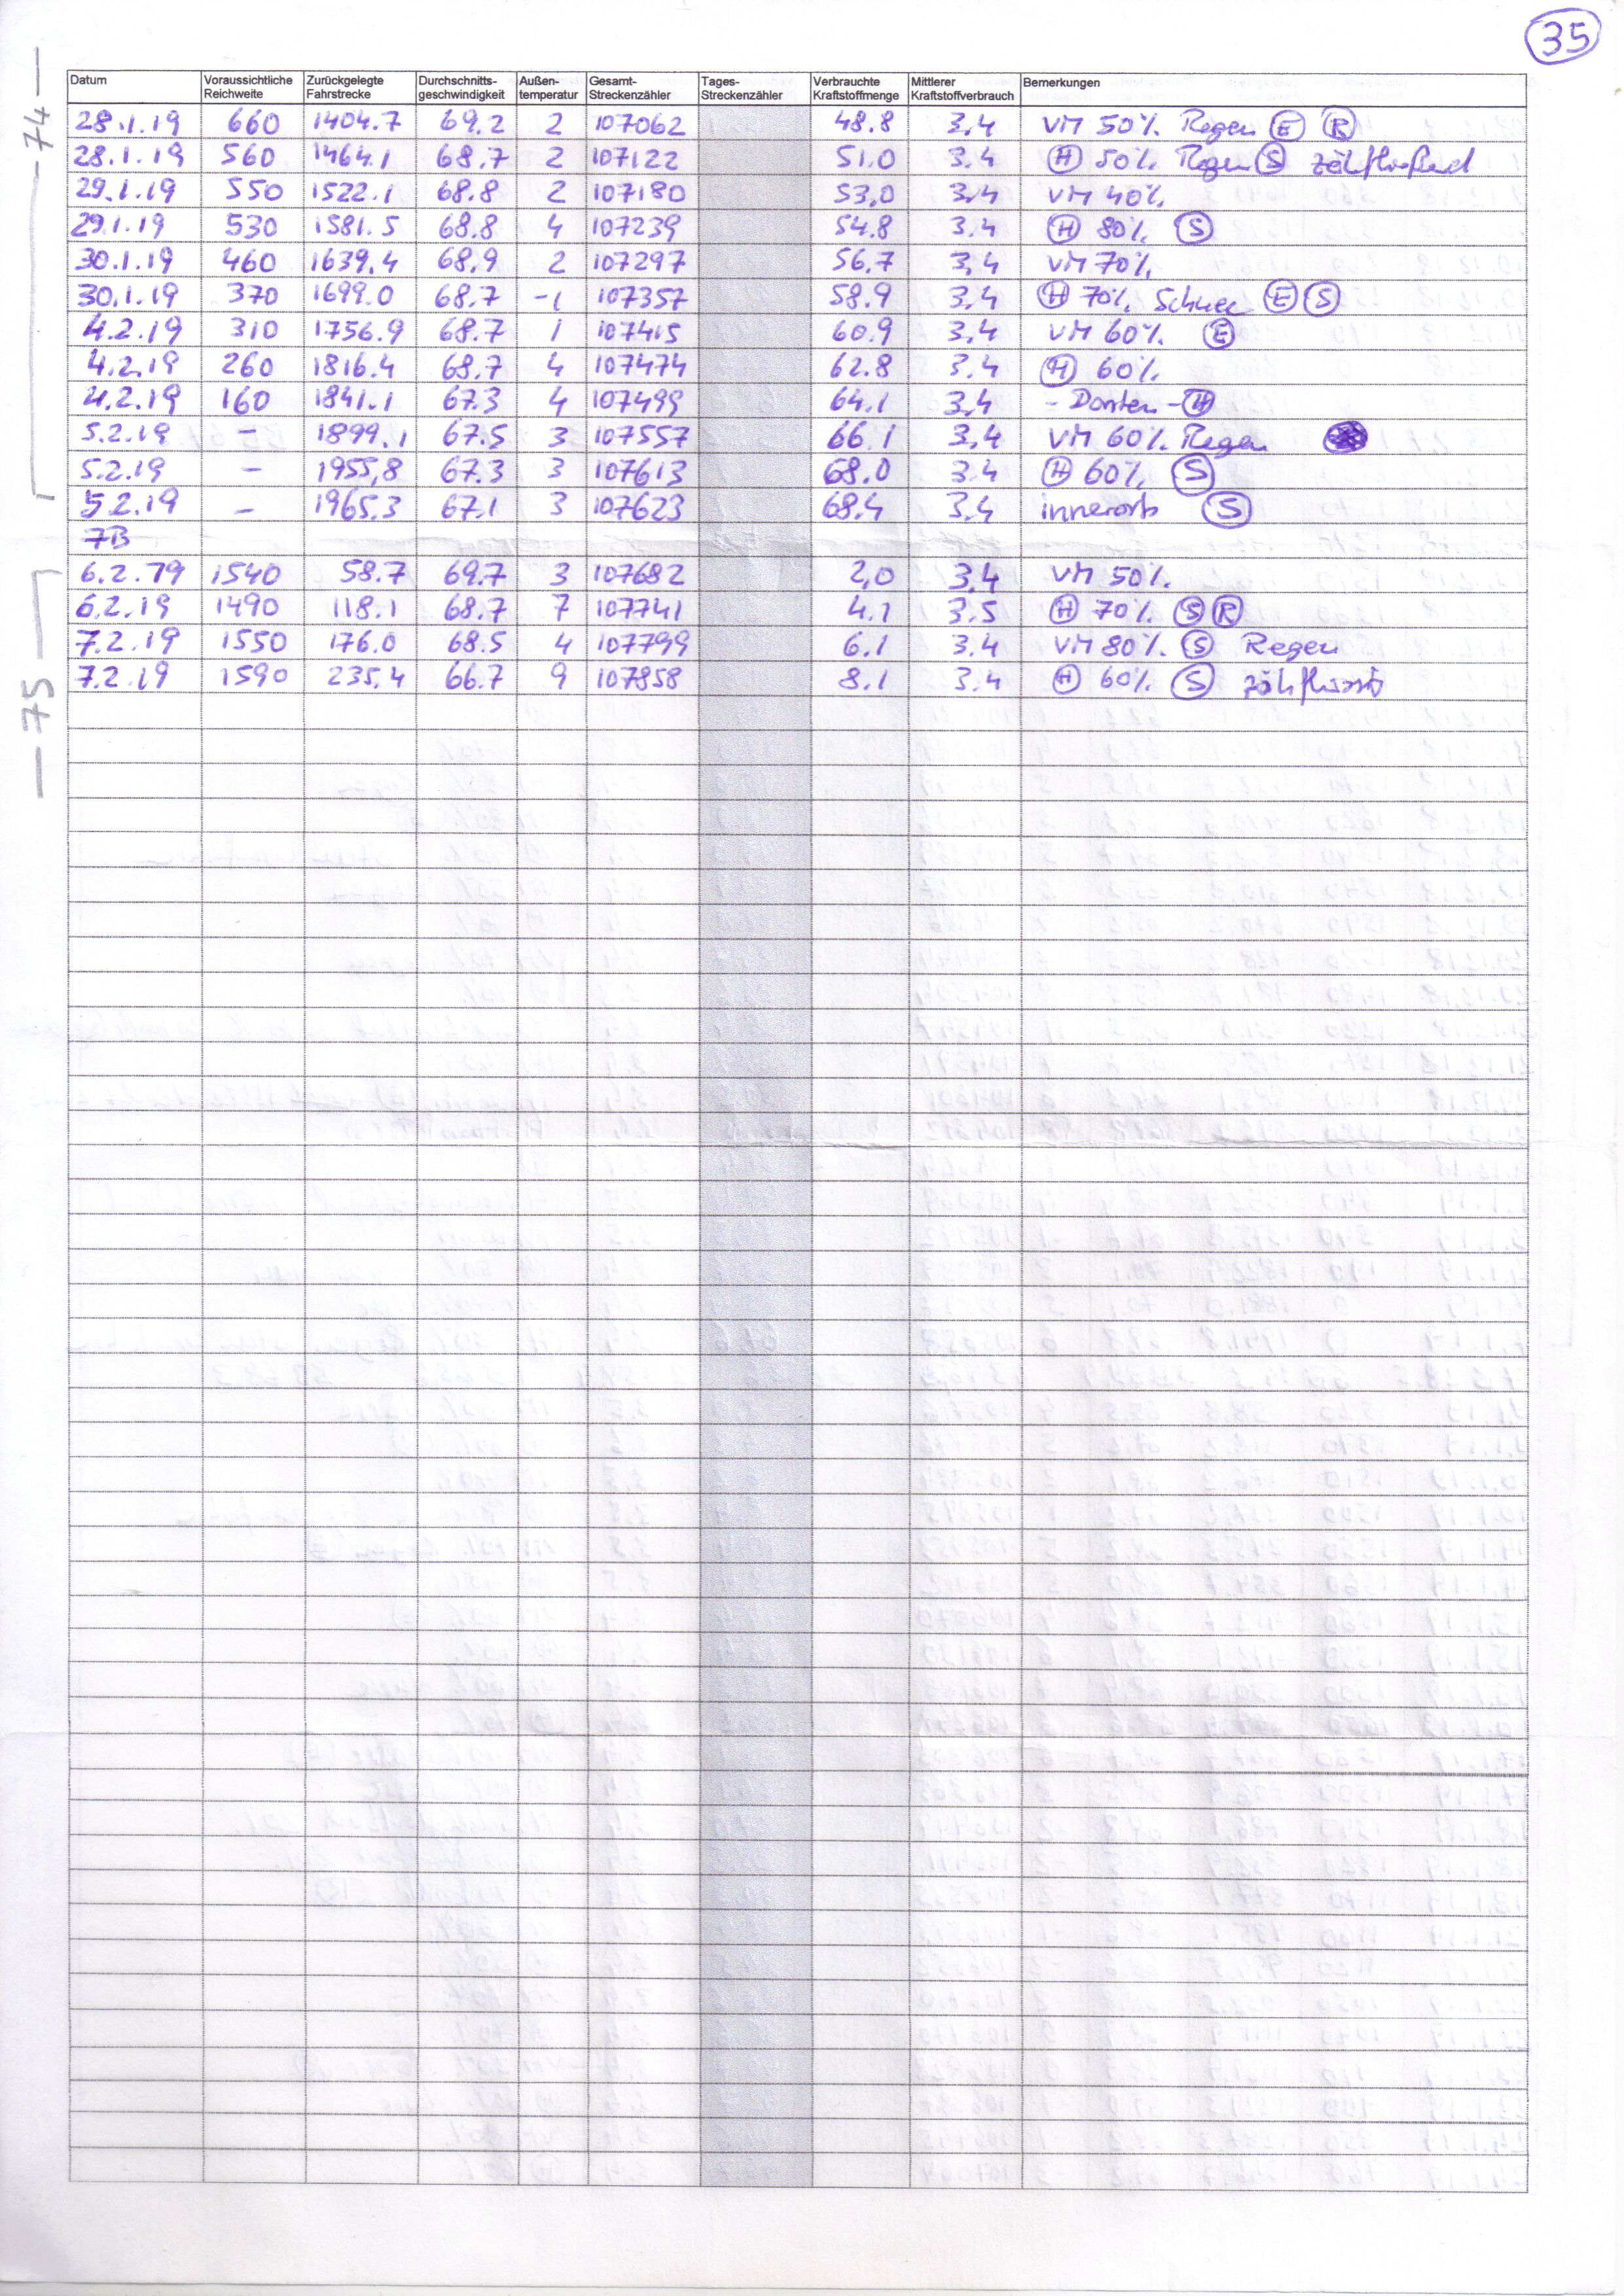 35
Datum Voraussichtliche Reichweite Zurückgelegte Fahrstrecke Durchschnitts-geschwindigkeit Außen-temperatur Gesamt-Streckenzähler Tages-Streckenzähler Verbrauchte Kraftstoffmenge Mittlerer Kraftstoffverbrauch Bemerkungen
—74—
28.1.19 660 1404.7 69.2 2 107062 48.8 3,4 VM 50% Regen E R
28.1.19 560 1464.1 68.7 2 107122 51.0 3.4 H 50% Regen S zähfließend
29.1.19 550 1522.1 68.8 2 107180 53,0 3,4 VM 40%
29.1.19 530 1581.5 68.8 4 107239 54.8 3.4 H 80% S
30.1.19 460 1639.4 68.9 2 107297 56.7 3,4 VM 70%
30.1.19 370 1699.0 68.7 -1 107357 58.9 3.4 H 70% Schnee E S
4.2.19 310 1756.9 68.7 1 107415 60.9 3,4 VM 60% E
4.2.19 260 1816.4 68.7 4 107474 62.8 3.4 H 60%
4.2.19 160 1841.1 67.3 4 107499 64.1 3,4 - Dorsten - H
5.2.19 - 1899.1 67.5 3 107557 66.1 3,4 VM 60% Regen
5.2.19 - 1955,8 67.3 3 107613 68.0 3.4 H 60% S
5 2.19 - 1965.3 67.1 3 107623 68.4 3.4 innerorts S
7B
—75—
6.2.19 1540 58.7 69.7 3 107682 2,0 3.4 VM 50%
6.2.19 1490 118.1 68.7 7 107741 4.1 3.5 H 70% S R
7.2.19 1550 176.0 68.5 4 107799 6.1 3.4 VM 80% S Regen
7.2.19 1590 235.4 66.7 9 107858 8.1 3.4 H 60% S